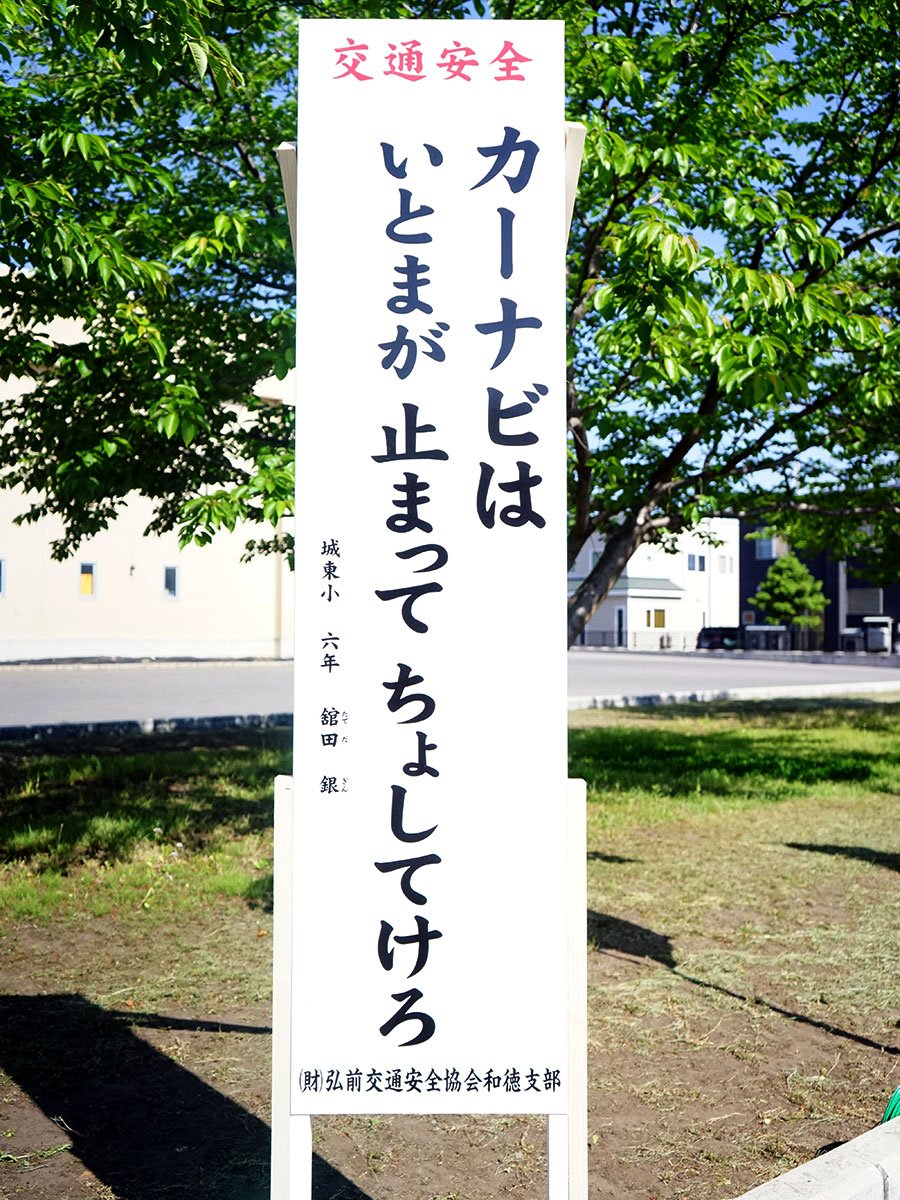 交通安全
カーナビは
いとまが 止まって ちょしてけろ
城東小 六年 舘田 銀
たてだ ぎん
(財)弘前交通安全協会和徳支部